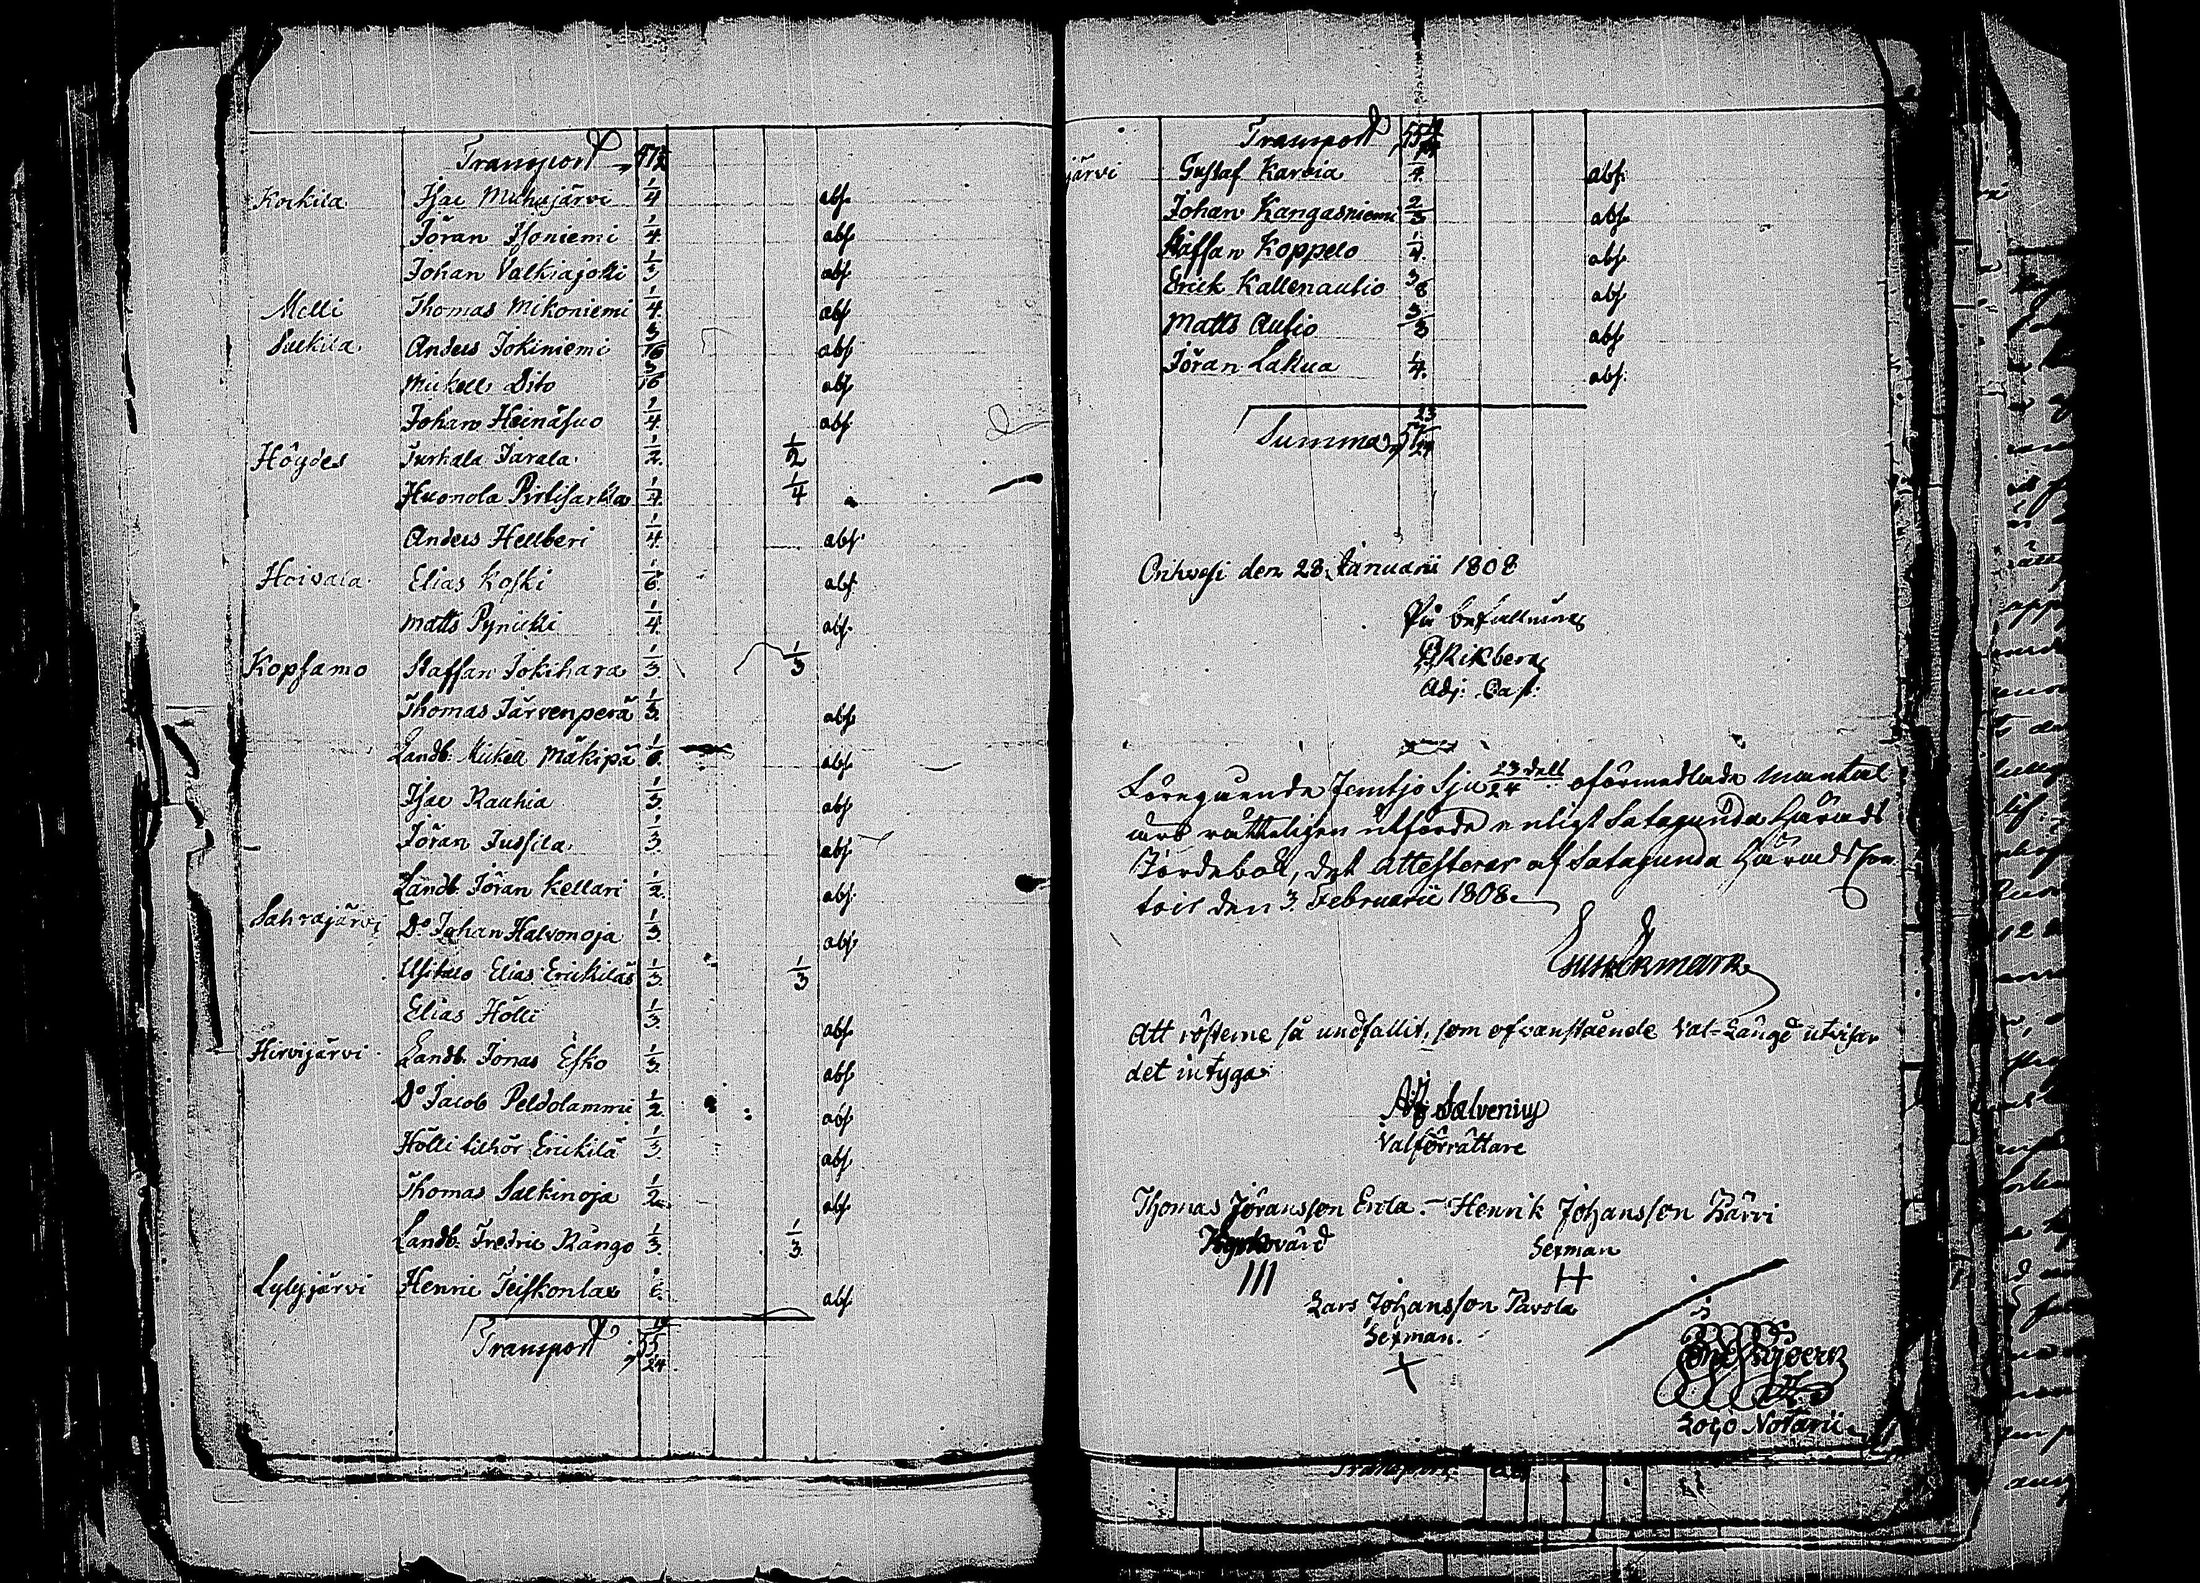 Transport
Korkila Isac Muhajärvi 1/4 abs.
Jöran Isoniemi 1/4 abs.
Johan Valkiajoki 1/3 abs.
Melli Thomas Mikoniemi 1/4 abs.
Suckila Anders Jokiniemi 3/16 abs.
Mickell Dito 3/16 abs.
Johan Heinäsuo 1/4 abs.
Höydes Turkala Jarala 1/2. 1/2
Huonola Pirtisarka 1/4. 1/4
Anders Hellberi 1/4. abs.
Hoivala Elias Koski 1/6. abs.
Matts Pynicki 1/4. abs.
Kopsamo Staffan Jokihara 1/3. 1/3
Thomas Järvenperä 1/3. abs.
Landb. Mickell Mäkipä 1/6. abs.
Isac Rauhia 1/3 abs.
Jöran Jussila 1/3. abs.
Landb. Jöran Kellari 1/2. abs.
Sahrajärvi Do Johan Halvonoja 1/3. abs.
Usitalo Elias Erickilas 1/3. 1/3
Elias Hölli 1/3. abs.
Hirvijärvi Landb. Jonas Esko 1/3. abs.
Do Jacob Peldolammi 1/2. abs.
Hölli tilhör Erickilä 1/3. abs.
Thomas Salkinoja 1/2. abs.
Landb. Fredric Rångo 1/3. 1/3.
Lylyjärvi Henric Teiskonlax abs.
Transport 55 19/24.
Transport 55 19/24
järvi Gustaf Karvia 1/4. abs.
Johan Kangasniemi 2/3 abs.
Staffan Koppelo 1/4. abs.
Erick Kallenautio 3/8 abs.
Matts Autio abs.
Jöran Lakua 1/4. abs.
Summa 57 23/24
Orihvesi den 28. Januarii 1808
På befallning
Rikberg
Adj. Past.
Föregående femtjo sju 23/24 dell oförmedlade mantal
äro rätteligen utförde enligt Satagunda Härads
Jordebok, det attesterar af Satagunda Häradscon-
toir den 3. Februarii 1808.
Att rösterne så undfallit, som ofvanstående Val-Längd utvisar
det intygar
Salvenius
Valförrättare
Thomas Jöransson Erola. — Henrik Johansson Pärvi
Kyrkovärd Sexman
III H
Lars Johansson Pavola
Sexman.
X
Loco Notarii